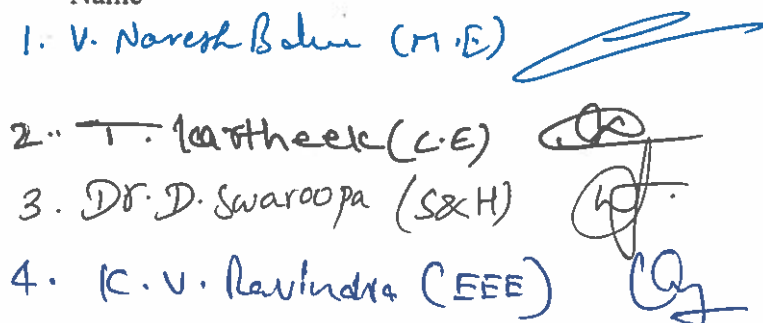 Name
1. V. Naresh Babu (M.E)
2. T. Kartheek (C.E)
3. Dr. D. Swaroopa (S&H)
4. K. V. Ravindra (EEE)